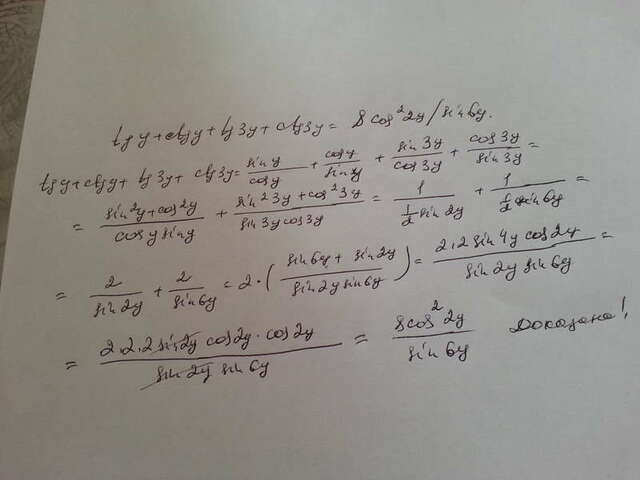 tg y + ctg y + tg 3y + ctg 3y = 8 cos² 2y / sin 6y.
tg y + ctg y + tg 3y + ctg 3y = sin y / cos y + cos y / sin y + sin 3y / cos 3y + cos 3y / sin 3y =
= (sin² y + cos² y) / (cos y sin y) + (sin² 3y + cos² 3y) / (sin 3y cos 3y) = 1 / (½ sin 2y) + 1 / (½ sin 6y) =
= 2 / sin 2y + 2 / sin 6y = 2 · ((sin 6y + sin 2y) / (sin 2y sin 6y)) = (2 · 2 sin 4y cos 2y) / (sin 2y sin 6y) =
= (2 · 2 · 2 sin 2y cos 2y · cos 2y) / (sin 2y sin 6y) = 8 cos² 2y / sin 6y Доказано!